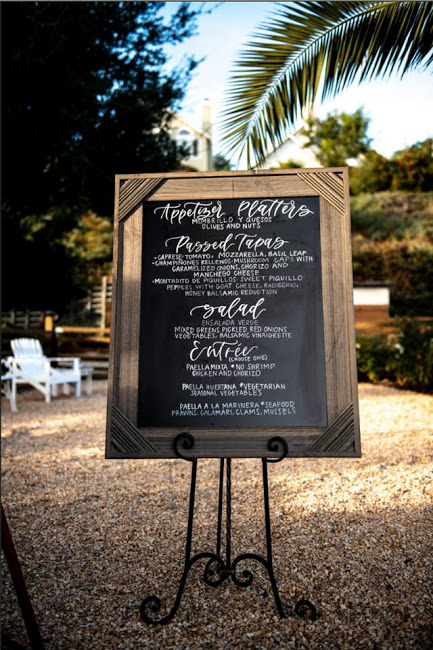 Appetizer Platters
MEMBRILLO Y QUESOS
OLIVES AND NUTS
Passed Tapas
•CAPRESE: TOMATO, MOZZARELLA, BASIL LEAF
•CHAMPIÑONES RELLENOS: MUSHROOM CAPS WITH
CARAMELIZED ONIONS, CHORIZO AND
MANCHEGO CHEESE
•MONTADITO DE PIQUILLOS: SWEET PIQUILLO
PEPPERS WITH GOAT CHEESE, RADICCHIO,
HONEY BALSAMIC REDUCTION
Salad
ENSALADA VERDE
MIXED GREENS PICKLED RED ONIONS
VEGETABLES, BALSAMIC VINAIGRETTE
Entrée
(CHOOSE ONE)
PAELLA MIXTA *NO SHRIMP
CHICKEN AND CHORIZO
PAELLA HUERTANA *VEGETARIAN
SEASONAL VEGETABLES
PAELLA A LA MARINERA *SEAFOOD
PRAWNS, CALAMARI, CLAMS, MUSSELS